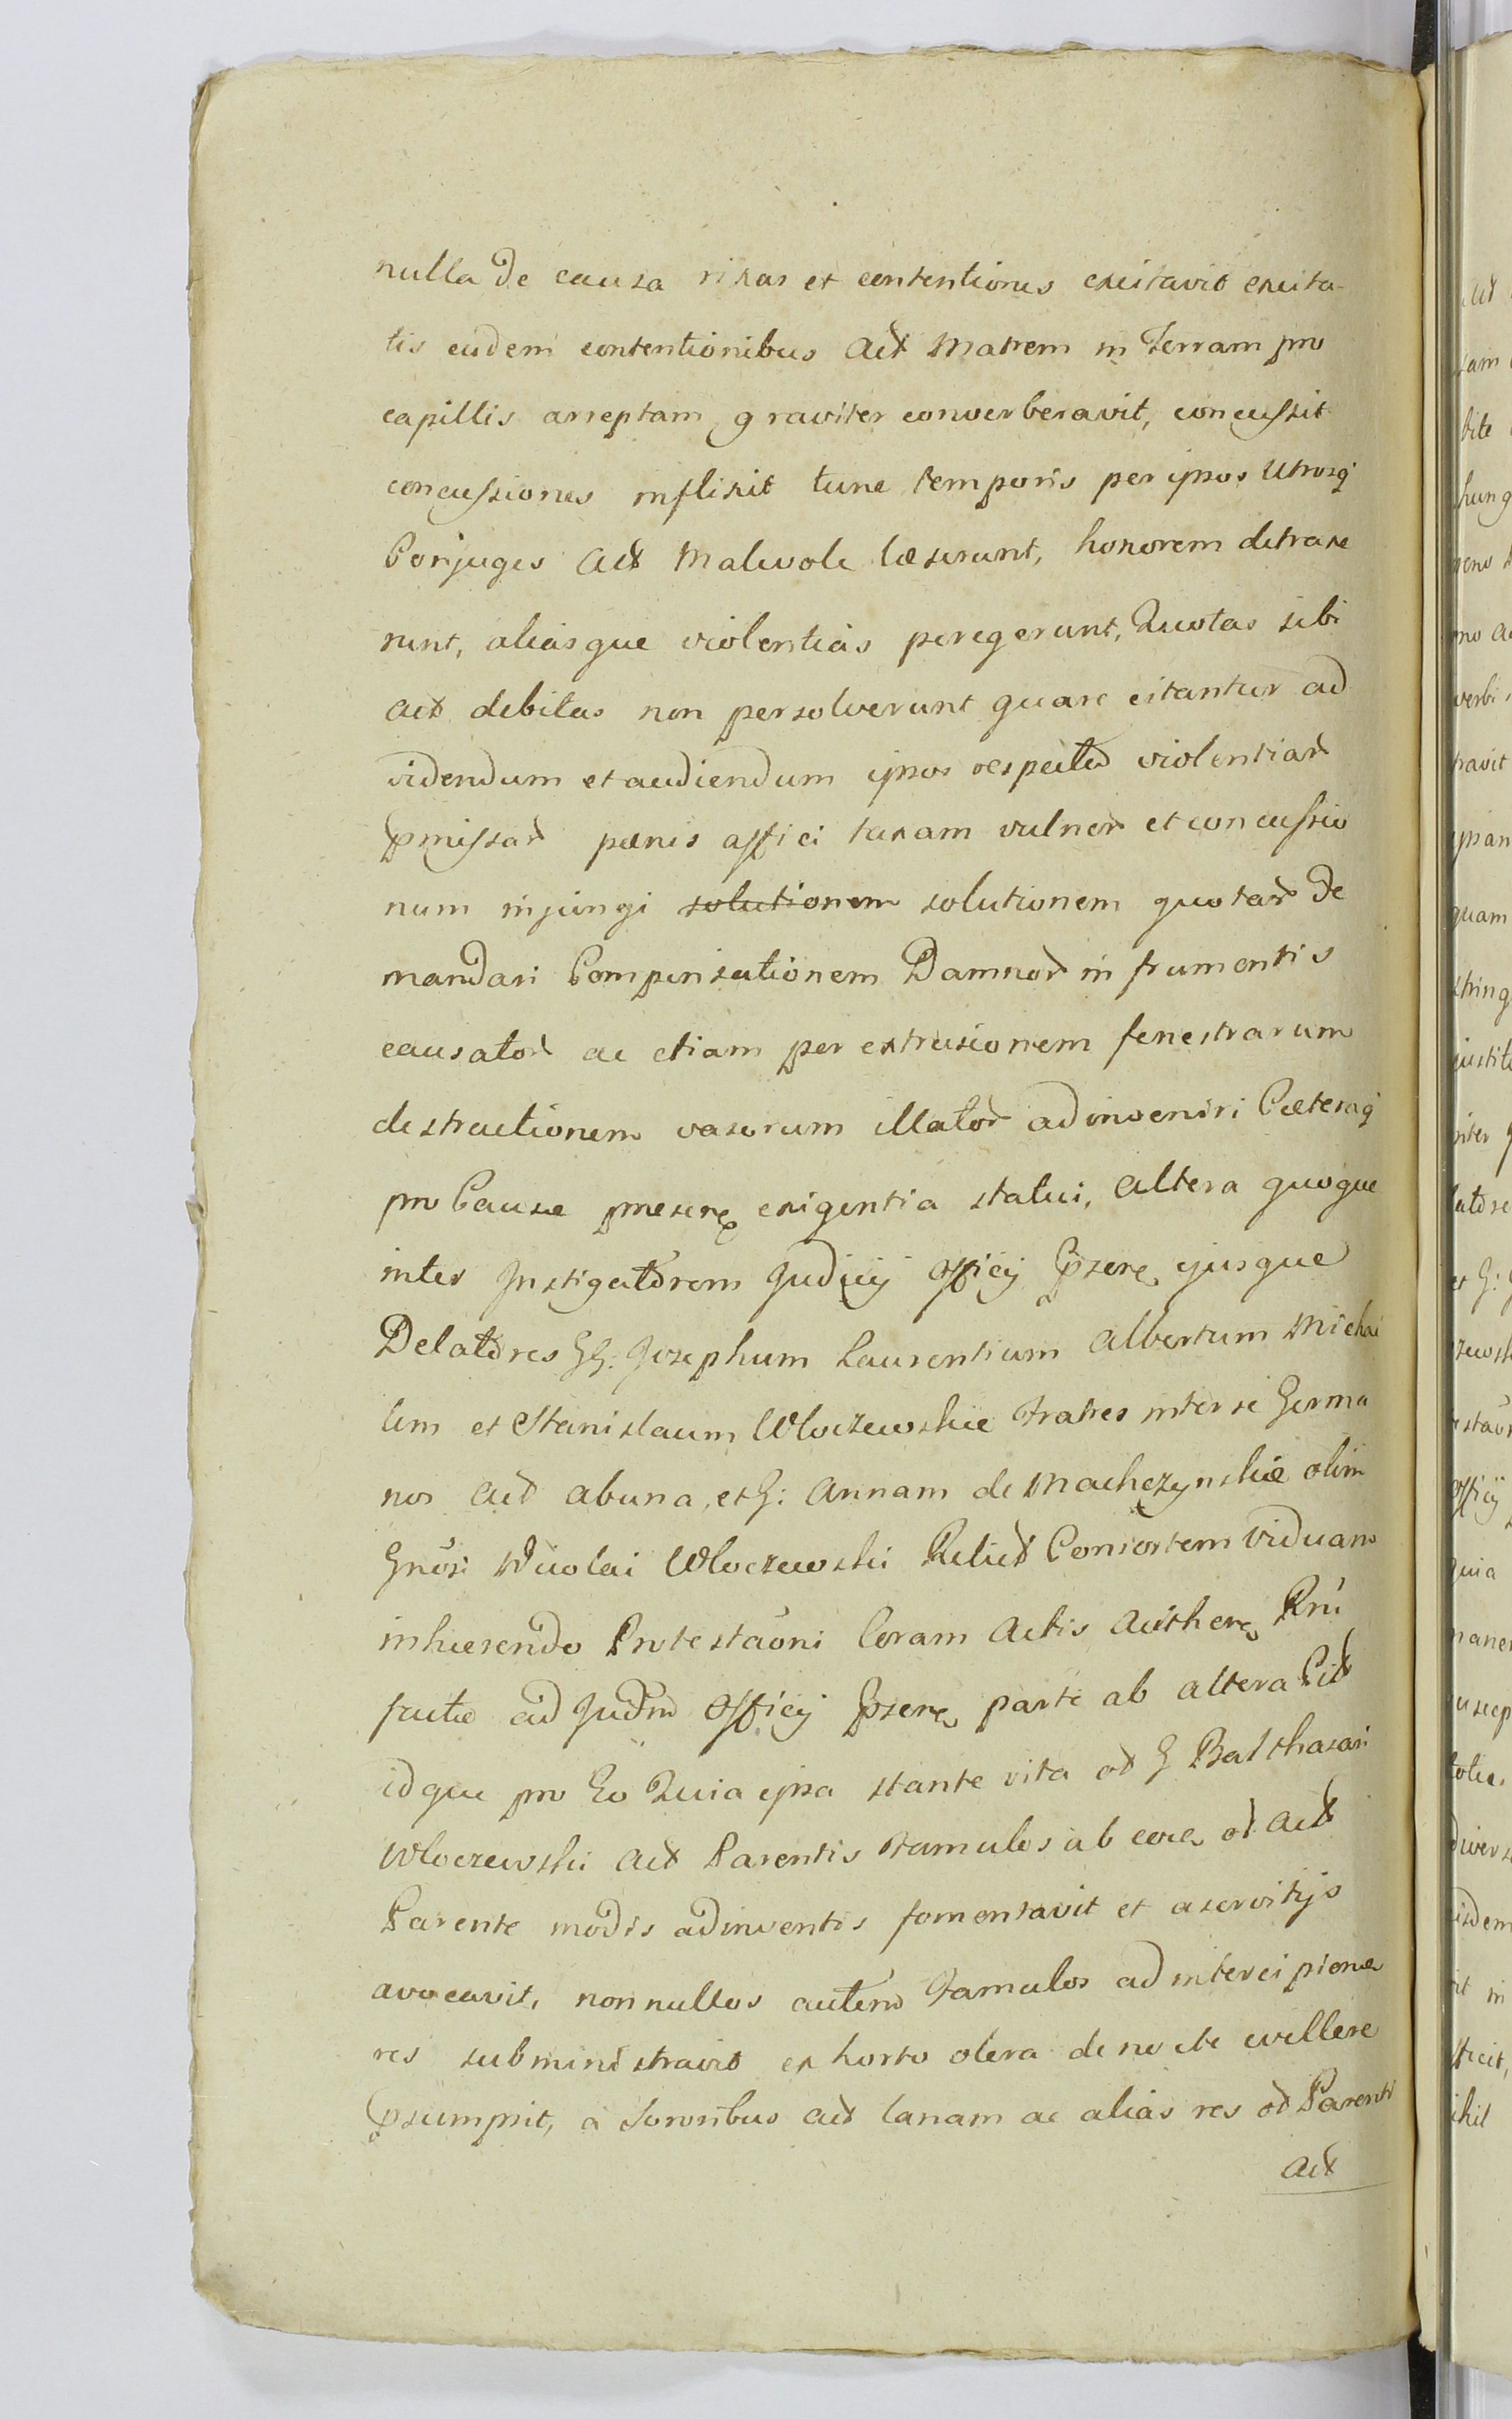 nulla de causa rixas et contentiones excitavit excita-
tis eisdem contentionibus Act Matrem in Terram pro
capillis arreptam graviter converberavit, concussit
concussiones inflixit tunc temporis per ipsos Utrosq
Conjuges Act Malevole læserunt, honorem detraxe
runt, aliasque violentias peregerunt, Quotas sibi
act debitas non persolverunt quare citantur ad
videndum et audiendum ipsos respectu violentiar
pmissar pænis affici taxam vulner et concussio
num injungi solutionem solutionem quotar De
mandari Compensationem Damnor in frumentis
causator ac etiam per extrusionem fenestrarum
destructionem vasorum illator adinveniri Cæteraq
pro Causæ presene exigentia statui, altera quoque
inter Instigatorem Judicij Officij psene ejusque
Delatores GG: Josephum Laurentium Albertum Micha
lem et Stanislaum Wloczewskie Fratres inter se Germa
nos Act ab una, et G: Annam de Machczynskie olim
Gnosi Nicolai Wloczewski Relict Consortem Viduam
inhærendo Protestaoni Coram Actis Authene Rni
factæ ad Judm Officij psene parte ab altera Cit
idque pro Eo Quia ipsa stante vita ol G Balthasari
Wloczewski Act Parentis Famulos ab eore ol Act
Parente modis adinventis fomentavit et a servitijs
avocavit, nonnullos autem Famulos ad intercipiene
res subministravit ex horto olera de nocte evellere
psumpsit, à Sororibus act lanam ac alias res ol Parenti
Act